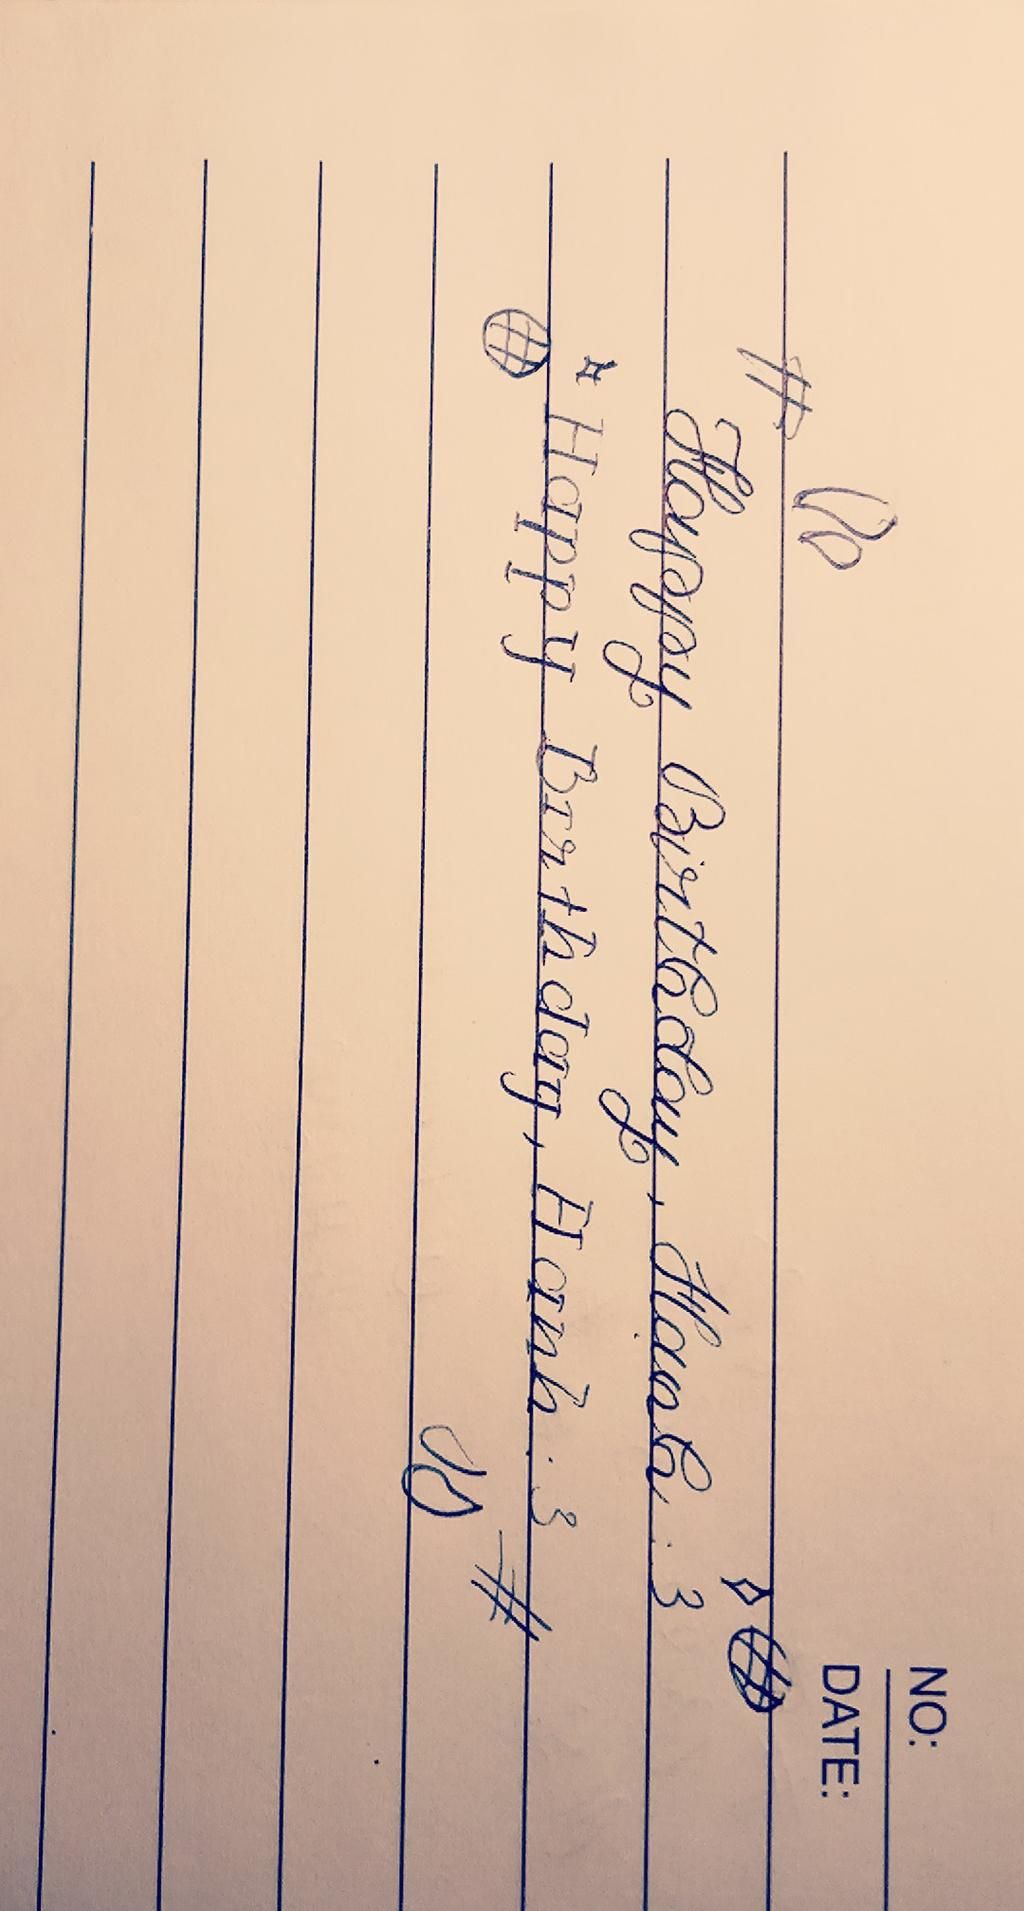 NO:
DATE:
Happy Birthday, Hanh :3
Happy Birthday, Hanh :3